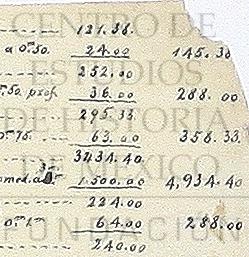 121.38.
a 0.50. 24.00 145.38
252.00
.50. prof. 36.00 288.00
295.33
0.75. 63.00 358.33
3434.40
1.500.00 4,934.40
224.00
64.00 288.00
240.00
CENTRO DE
ESTUDIOS
DE HISTORIA
DE MEXICO
FUNDACION